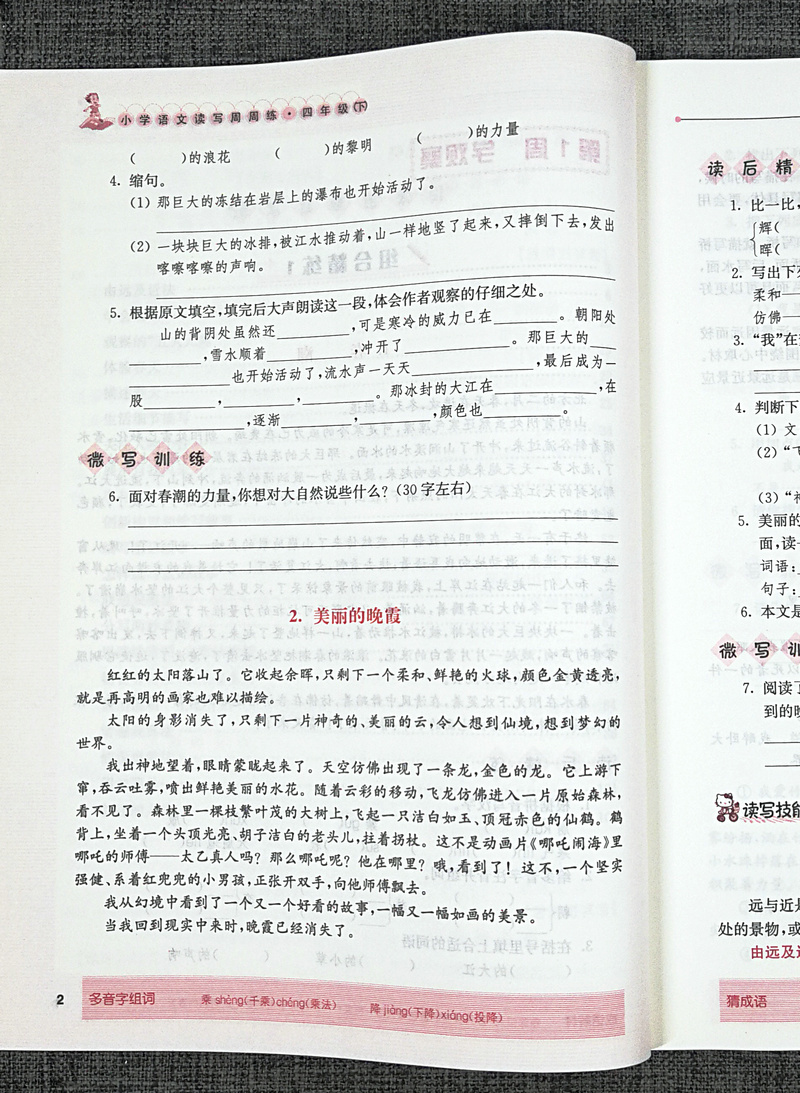 小学语文读写周周练·四年级(下)
(　　)的浪花　(　　)的黎明　(　　)的力量
4. 缩句。
(1) 那巨大的冻结在岩层上的瀑布也开始活动了。
(2) 一块块巨大的冰排,被江水推动着,山一样地竖了起来,又摔倒下去,发出
喀嚓喀嚓的声响。
5. 根据原文填空,填完后大声朗读这一段,体会作者观察的仔细之处。
山的背阴处虽然还________,可是寒冷的威力已在________。朝阳处
________,雪水顺着________,冲开了________。那巨大的____
________也开始活动了,流水声一天天________,最后成为一
股________,________,________。那冰封的大江在________,在
________,逐渐________,________,颜色也________。
微写训练
6. 面对春潮的力量,你想对大自然说些什么?(30字左右)
2. 美丽的晚霞
红红的太阳落山了。它收起余晖,只剩下一个柔和、鲜艳的火球,颜色金黄透亮,
就是再高明的画家也难以描绘。
太阳的身影消失了,只剩下一片神奇的、美丽的云,令人想到仙境,想到梦幻的
世界。
我出神地望着,眼睛蒙眬起来了。天空仿佛出现了一条龙,金色的龙。它上游下
窜,吞云吐雾,喷出鲜艳美丽的水花。随着云彩的移动,飞龙仿佛进入一片原始森林,
看不见了。森林里一棵枝繁叶茂的大树上,飞起一只洁白如玉、顶冠赤色的仙鹤。鹤
背上,坐着一个头顶光亮、胡子洁白的老头儿,拄着拐杖。这不是动画片《哪吒闹海》里
哪吒的师傅——太乙真人吗?那么哪吒呢?他在哪里?哦,看到了!这不,一个坚实
强健、系着红兜兜的小男孩,正张开双手,向他师傅飘去。
我从幻境中看到了一个又一个好看的故事,一幅又一幅如画的美景。
当我回到现实中来时,晚霞已经消失了。
2
多音字组词　乘 shèng(千乘)chéng(乘法)　降 jiàng(下降)xiáng(投降)
读后精
1. 比一比,
辉(
晖(
2. 写出下
柔和
仿佛
3. “我”在
4. 判断下
(1) 文
(2) “
(3) “神
5. 美丽的
面,读一
词语:
句子:
6. 本文是
微写训
7. 阅读了
到的晚
读写技能
远与近是
处的景物,或
由远及近
猜成语